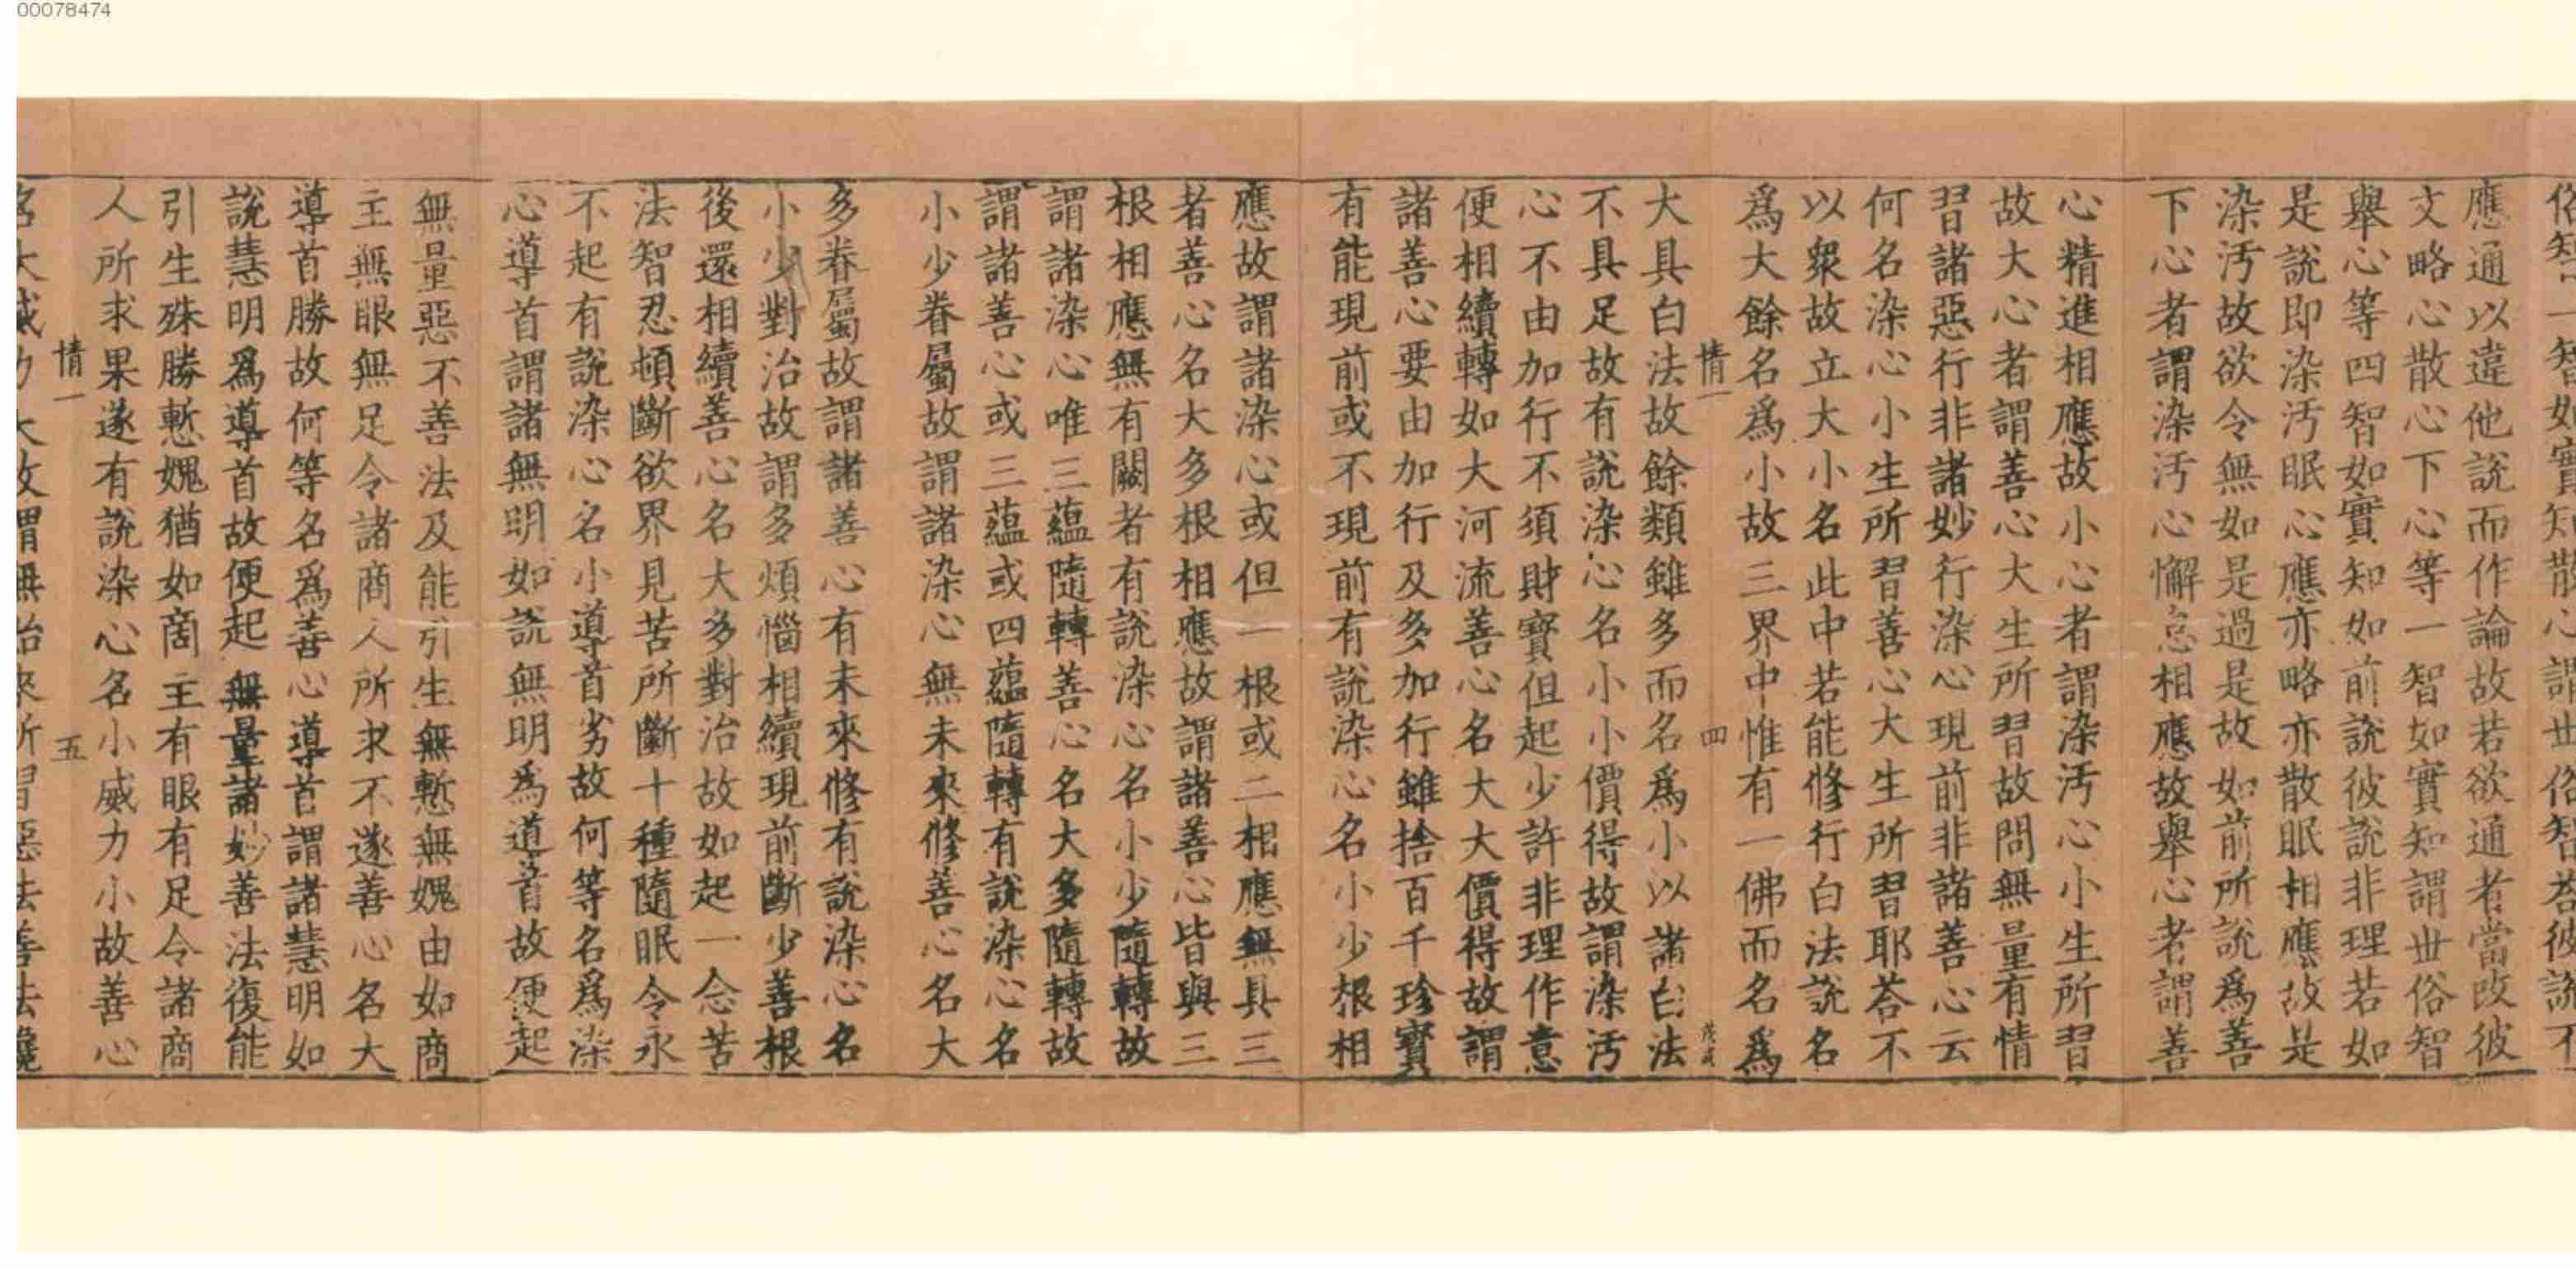 00078474
俗智一智如實知散心謂世俗智荅彼說不
應通以違他說而作論故若欲通者當改彼
文略心散心下心等一智如實知謂世俗智
舉心等四智如實知如前說彼說非理若如
是說即染汚眠心應亦略亦散眠相應故是
染汚故欲令無如是過是故如前所說爲善
下心者謂染汚心懈怠相應故舉心者謂善
心精進相應故小心者謂染汚心小生所習
故大心者謂善心大生所習故問無量有情
習諸惡行非諸妙行染心現前非諸善心云
何名染心小生所習善心大生所習耶荅不
以衆故立大小名此中若能修行白法說名
爲大餘名爲小故三界中惟有一佛而名爲
情一 四 茂戒
大具白法故餘類雖多而名爲小以諸白法
不具足故有說染心名小小價得故謂染汚
心不由加行不須財寶但起少許非理作意
便相續轉如大河流善心名大大價得故謂
諸善心要由加行及多加行雖捨百千珍寶
有能現前或不現前有說染心名小少根相
應故謂諸染心或但一根或二相應無具三
者善心名大多根相應故謂諸善心皆與三
根相應無有闕者有說染心名小少隨轉故
謂諸染心唯三蘊隨轉善心名大多隨轉故
謂諸善心或三蘊或四蘊隨轉有說染心名
小少眷屬故謂諸染心無未來修善心名大
多眷屬故謂諸善心有未來修有說染心名
小少對治故謂多煩惱相續現前斷少善根
後還相續善心名大多對治故如起一念苦
法智忍頓斷欲界見苦所斷十種隨眠令永
不起有說染心名小導首劣故何等名爲染
心導首謂諸無明如說無明爲導首故便起
無量惡不善法及能引生無慙無媿由如商
主無眼無足令諸商人所求不遂善心名大
導首勝故何等名爲善心導首謂諸慧明如
說慧明爲導首故便起無量諸妙善法復能
引生殊勝慙媿猶如商主有眼有足令諸商
人所求果遂有說染心名小威力小故善心
情一 五
名大威力大故謂無始來所習惡法善法纔